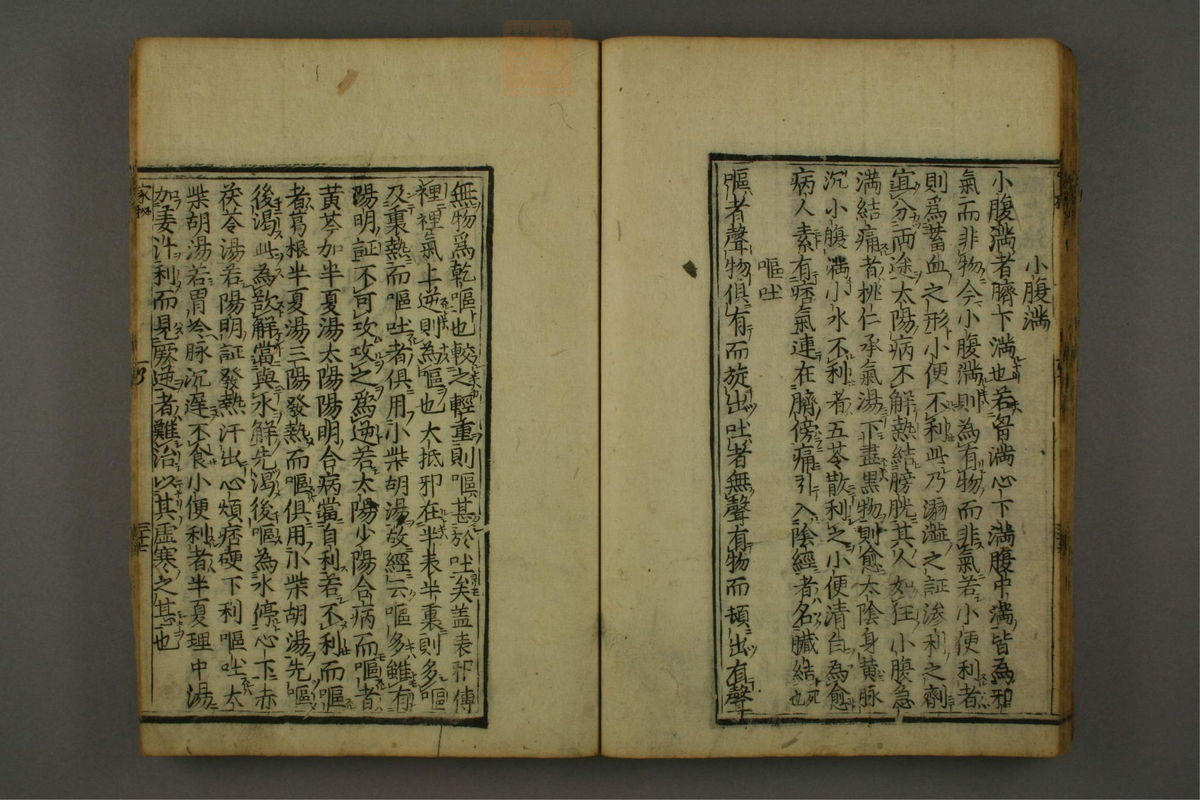 小腹滿
小腹滿者臍下滿也若胷滿心下滿腹中滿皆為邪
氣而非物今小腹滿則為有物而非氣若小便利者
則爲蓄血之形小便不利此乃溺澁之証滲利之劑
宜分兩途太陽病不解熱結膀胱其人如狂小腹急
滿結痛者桃仁承氣湯下盡黒物則愈太陰身黄脉
沉小腹滿小水不利者五苓散利之小便清白為愈
病人素有痞氣連在臍傍痛引入陰經者名臟結也
嘔吐
嘔者聲物俱有而旋出吐者無聲有物而頓出有聲
無物爲乾嘔也較之輕重則嘔甚於吐矣盖表邪傳
裡裡氣上逆則為嘔也大抵邪在半表半裏則多嘔
及裏熱而嘔吐者俱用小柴胡湯故經云嘔多雖有
陽明証不可攻攻之爲逆若太陽少陽合病而嘔者
黄芩加半夏湯太陽陽明合病當自利若不利而嘔
者葛根半夏湯三陽發熱而嘔俱用小柴胡湯先嘔
後渴此為欲解當與水解先渴後嘔為水停心下赤
茯苓湯若陽明証發熱汗出心煩痞硬下利嘔吐大
柴胡湯若胃冷脉沉遲不食小便利者半夏理中湯
加姜汁利而見厥逆者難治以其虚寒之甚也